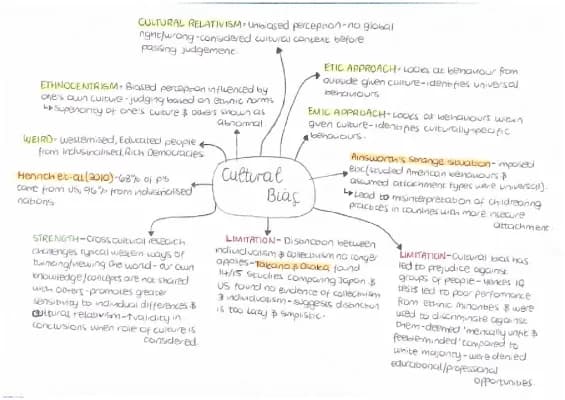 CULTURAL RELATIVISM - Unbiased perception - no global
right/wrong - considered cultural context before
passing judgement.
ETIC APPROACH - Looks at behaviour from
outside given culture - identifies universal
behaviours.
ETHNOCENTRISM - Biased perception influenced by
one's own culture - judging based on ethnic norms
↳ Superiority of one's culture & others shown as
abnormal
EMIC APPROACH - Looks at behaviours within
given culture - identifies culturally-specific
behaviours.
WEIRD - Westernised, Educated people
from Industrialised, Rich Democracies
Ainsworth's Strange Situation - imposed
etic (studied American behaviours &
assumed attachment types were universal).
↳ Lead to misinterpretation of childrearing
practices in countries with more insecure
attachment
Henrich et al (2010) - 68% of p's
came from US, 96% from industrialised
nations
Cultural
Bias
STRENGTH - Cross cultural research
challenges typical western ways of
thinking/viewing the world - our own
knowledge/concepts are not shared
with others - promotes greater
sensitivity to individual differences &
cultural relativism - ↑ validity in
conclusions when role of culture is
considered.
LIMITATION - Distinction between
individualism & collectivism no longer
applies - Takano & Osaka found
14/15 studies comparing Japan &
US found no evidence of collectivism
& individualism - suggests distinction
is too lazy & simplistic.
LIMITATION - Cultural bias has
led to prejudice against
groups of people - IQ
tests led to poor performance
from ethnic minorities & were
used to discriminate against
them - deemed 'mentally unfit &
feebleminded' compared to
white majority - were denied
educational/professional
opportunities.